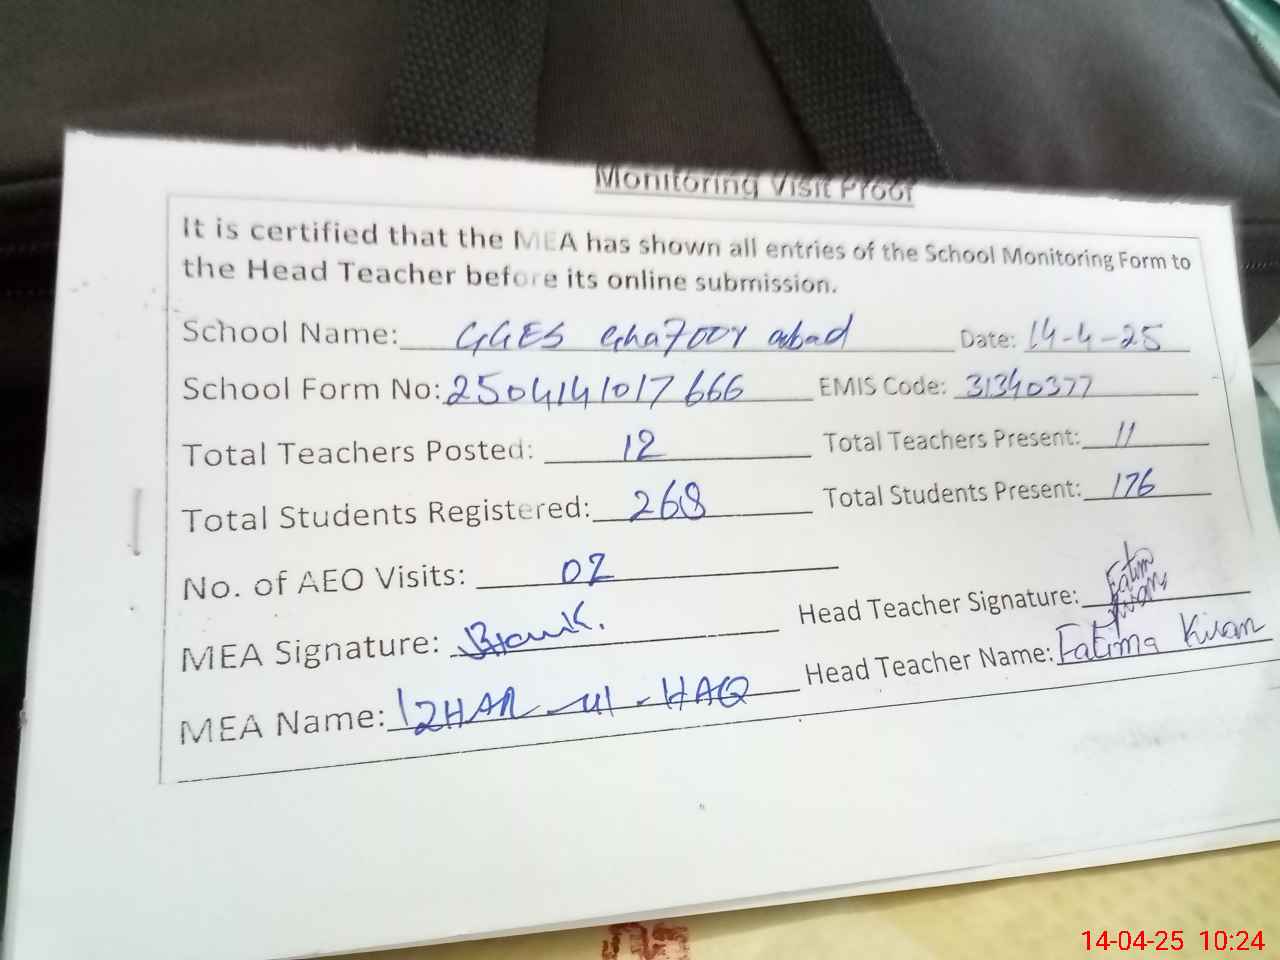 Monitoring Visit Proof
It is certified that the MEA has shown all entries of the School Monitoring Form to
the Head Teacher before its online submission.
School Name: GGES Ghafoor abad Date: 14-4-25
School Form No: 2504141017666 EMIS Code: 31340377
Total Teachers Posted: 12 Total Teachers Present: 11
Total Students Registered: 268 Total Students Present: 176
No. of AEO Visits: 02
MEA Signature: Head Teacher Signature: Fatima Kiran
MEA Name: IZHAR-ul-HAQ Head Teacher Name: Fatima Kiran
14-04-25 10:24